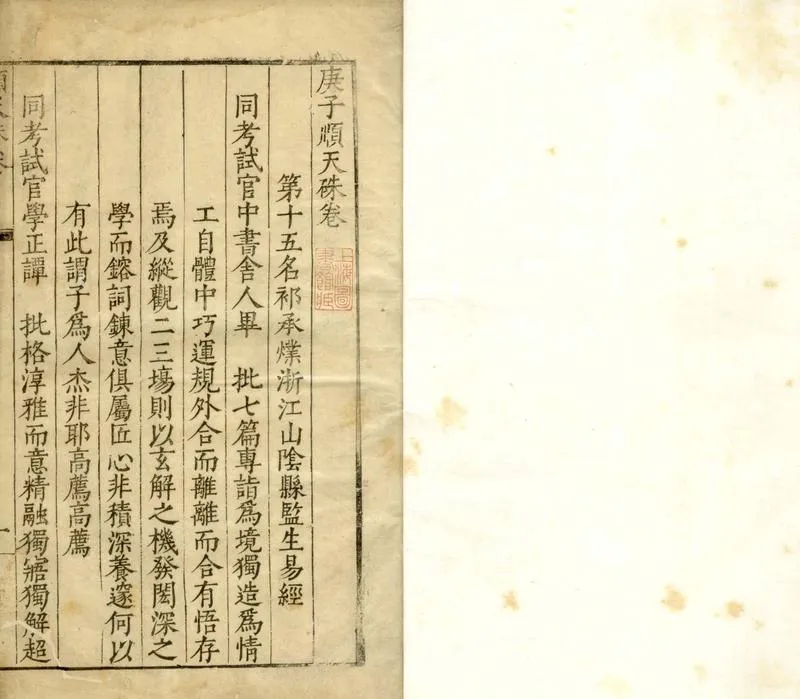 庚子順天硃卷
第十五名祁承㸁浙江山陰縣監生易經
同考試官中書舍人畢　批七篇專詣為境獨造為情
工自體中巧運規外合而離離而合有悟存
焉及縱觀二三場則以玄解之機發閎深之
學而鎔詞鍊意俱屬匠心非積深養邃何以
有此謂子為人杰非耶高薦高薦
同考試官學正譚　批格淳雅而意精融獨寤獨解超
上海圖書館藏